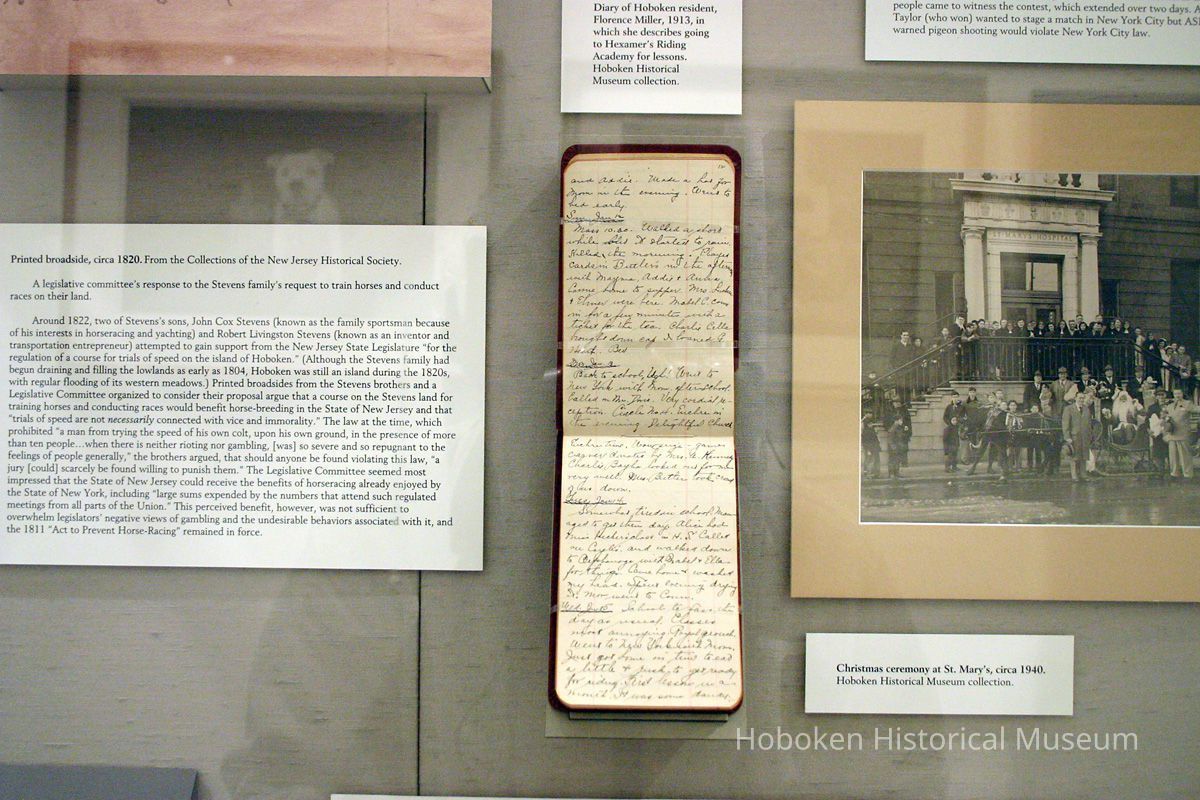 Diary of Hoboken resident,
Florence Miller, 1913, in
which she describes going
to Hexamer's Riding
Academy for lessons.
Hoboken Historical
Museum collection.
people came to witness the contest, which extended over two days. A
Taylor (who won) wanted to stage a match in New York City but
warned pigeon shooting would violate New York City law.
Printed broadside, circa 1820. From the Collections of the New Jersey Historical Society.
A legislative committee's response to the Stevens family's request to train horses and conduct
races on their land.
Around 1822, two of Stevens's sons, John Cox Stevens (known as the family sportsman because
of his interests in horseracing and yachting) and Robert Livingston Stevens (known as an inventor and
transportation entrepreneur) attempted to gain support from the New Jersey State Legislature "for the
regulation of a course for trials of speed on the island of Hoboken." (Although the Stevens family had
begun draining and filling the lowlands as early as 1804, Hoboken was still an island during the 1820s,
with regular flooding of its western meadows.) Printed broadsides from the Stevens brothers and a
Legislative Committee organized to consider their proposal argue that a course on the Stevens land for
training horses and conducting races would benefit horse-breeding in the State of New Jersey and that
"trials of speed are not necessarily connected with vice and immorality." The law at the time, which
prohibited "a man from trying the speed of his own colt, upon his own ground, in the presence of more
than ten people...when there is neither rioting nor gambling, [was] so severe and so repugnant to the
feelings of people generally," the brothers argued, that should anyone be found violating this law, "a
jury [could] scarcely be found willing to punish them." The Legislative Committee seemed most
impressed that the State of New Jersey could receive the benefits of horseracing already enjoyed by
the State of New York, including "large sums expended by the numbers that attend such regulated
meetings from all parts of the Union." This perceived benefit, however, was not sufficient to
overwhelm legislators' negative views of gambling and the undesirable behaviors associated with it, and
the 1811 "Act to Prevent Horse-Racing" remained in force.
and Addie. Made a hat for
Mom in the evening. Went to
bed early.
Sun. Jan 12
Mass 10.30. Walked a short
while it started to rain.
Killed the morning. Played
cards in Butlers in the
with Mayme, Addie &
Came home to supper. Mrs.
& Elmer were here. Mabel C. came
in for a few minutes with a
ticket for the tea. Charlie Cella
brought down cap I loaned
Bed
Back to school, Ugh! Went to
New York with Mom after school.
Called on Mrs. Very cordial re-
ception. Euchre in
the evening. Delightful
games
very well. Mrs. Butler
down.
Somewhat tired in school. Man-
aged to get thru day. Alice had
Miss class in H.S. Called
and walked down
to Orphanage with Mabel & Ella
for Came home & washed
my head. Spent evening drying
it. Mom went to
School to
day as usual. Classes
most annoying.
Went to New York with Mom.
Just got home in time to eat
a little & rush to get ready
for riding. First lesson in a
month. It was some dandy.
Christmas ceremony at St. Mary's, circa 1940.
Hoboken Historical Museum collection.
Hoboken Historical Museum